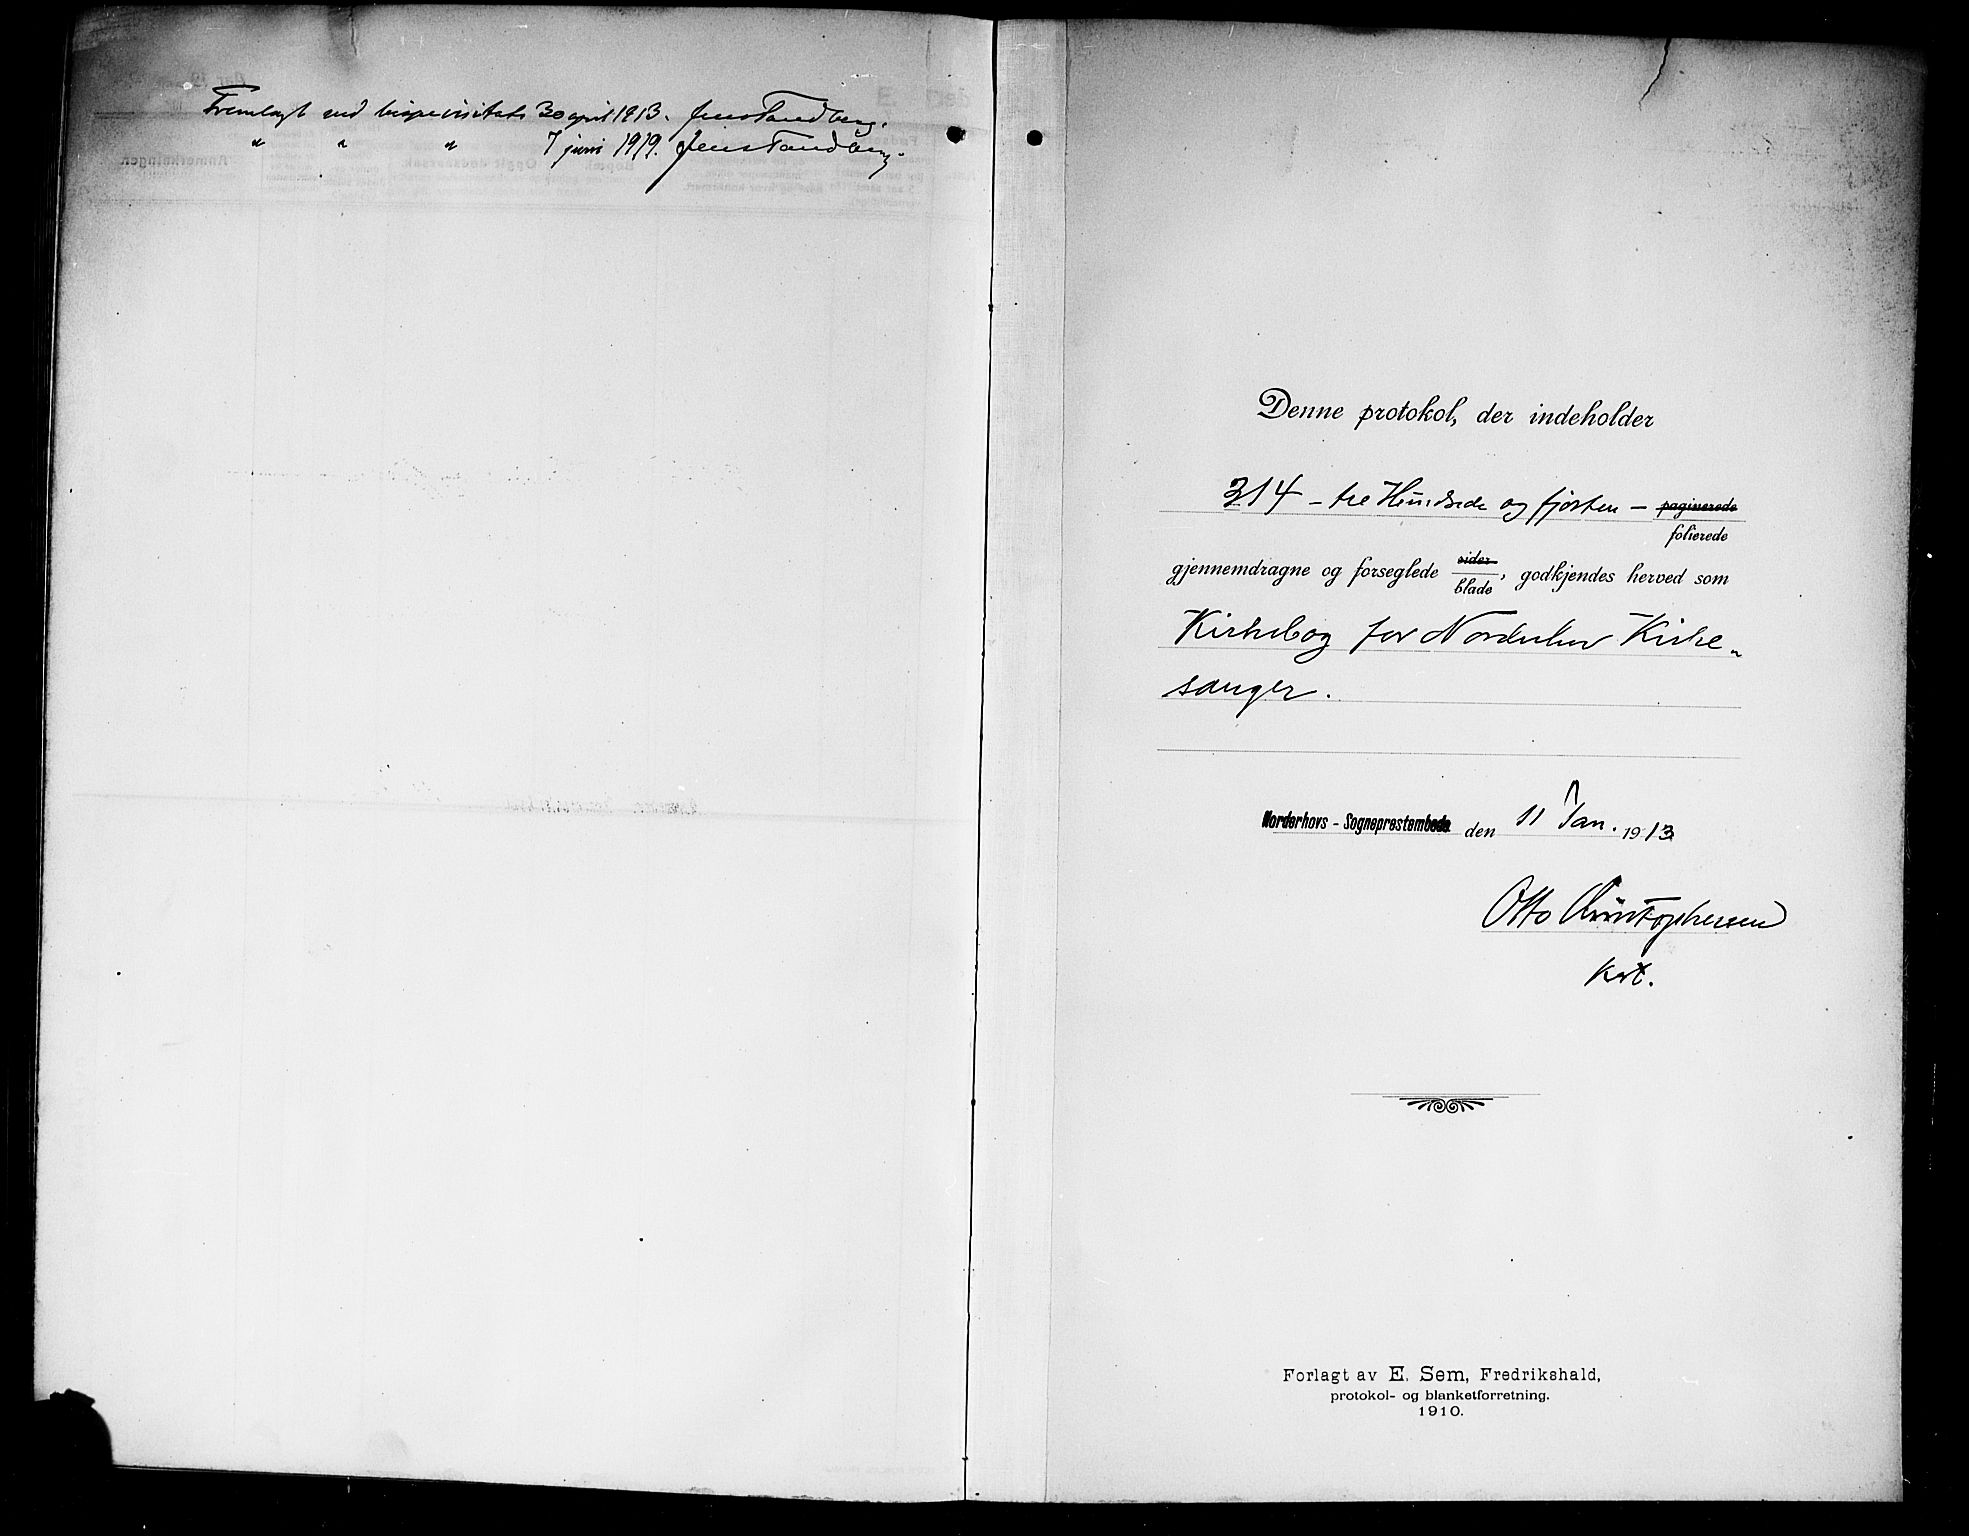 Fremlagt ved bispevisitats 30 april 1913. Jens Tandberg.
" " " 7 juni 1919. Jens Tandberg.
Denne protokol, der indeholder
314 – tre Hundrede og fjorten – paginerede
folierede
gjennemdragne og forseglede sider blade, godkjendes herved som
Kirkebog for Norderhov Kirke-
sanger.
Norderhovs - Sogneprestembede den 11 Jan. 1913
Otto Christophersen
kst.
Forlagt av E. Sem, Fredrikshald,
protokol- og blanketforretning.
1910.